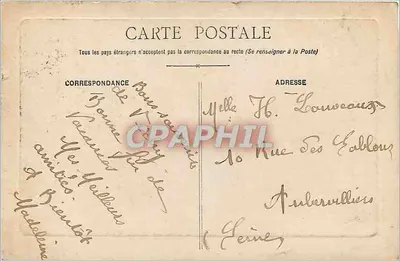 CARTE POSTALE
Tous les pays étrangers n'acceptent pas la correspondance au recto (Se renseigner à la Poste)
CORRESPONDANCE
Bons souvenirs
de Vichy
Bonne fin de
Vacances
Mes Meilleurs
amitiés
A Bientôt
Madeleine
ADRESSE
Melle H. Louveaux
10 Rue des Sablons
Aubervilliers
(Seine)
CPAPHIL